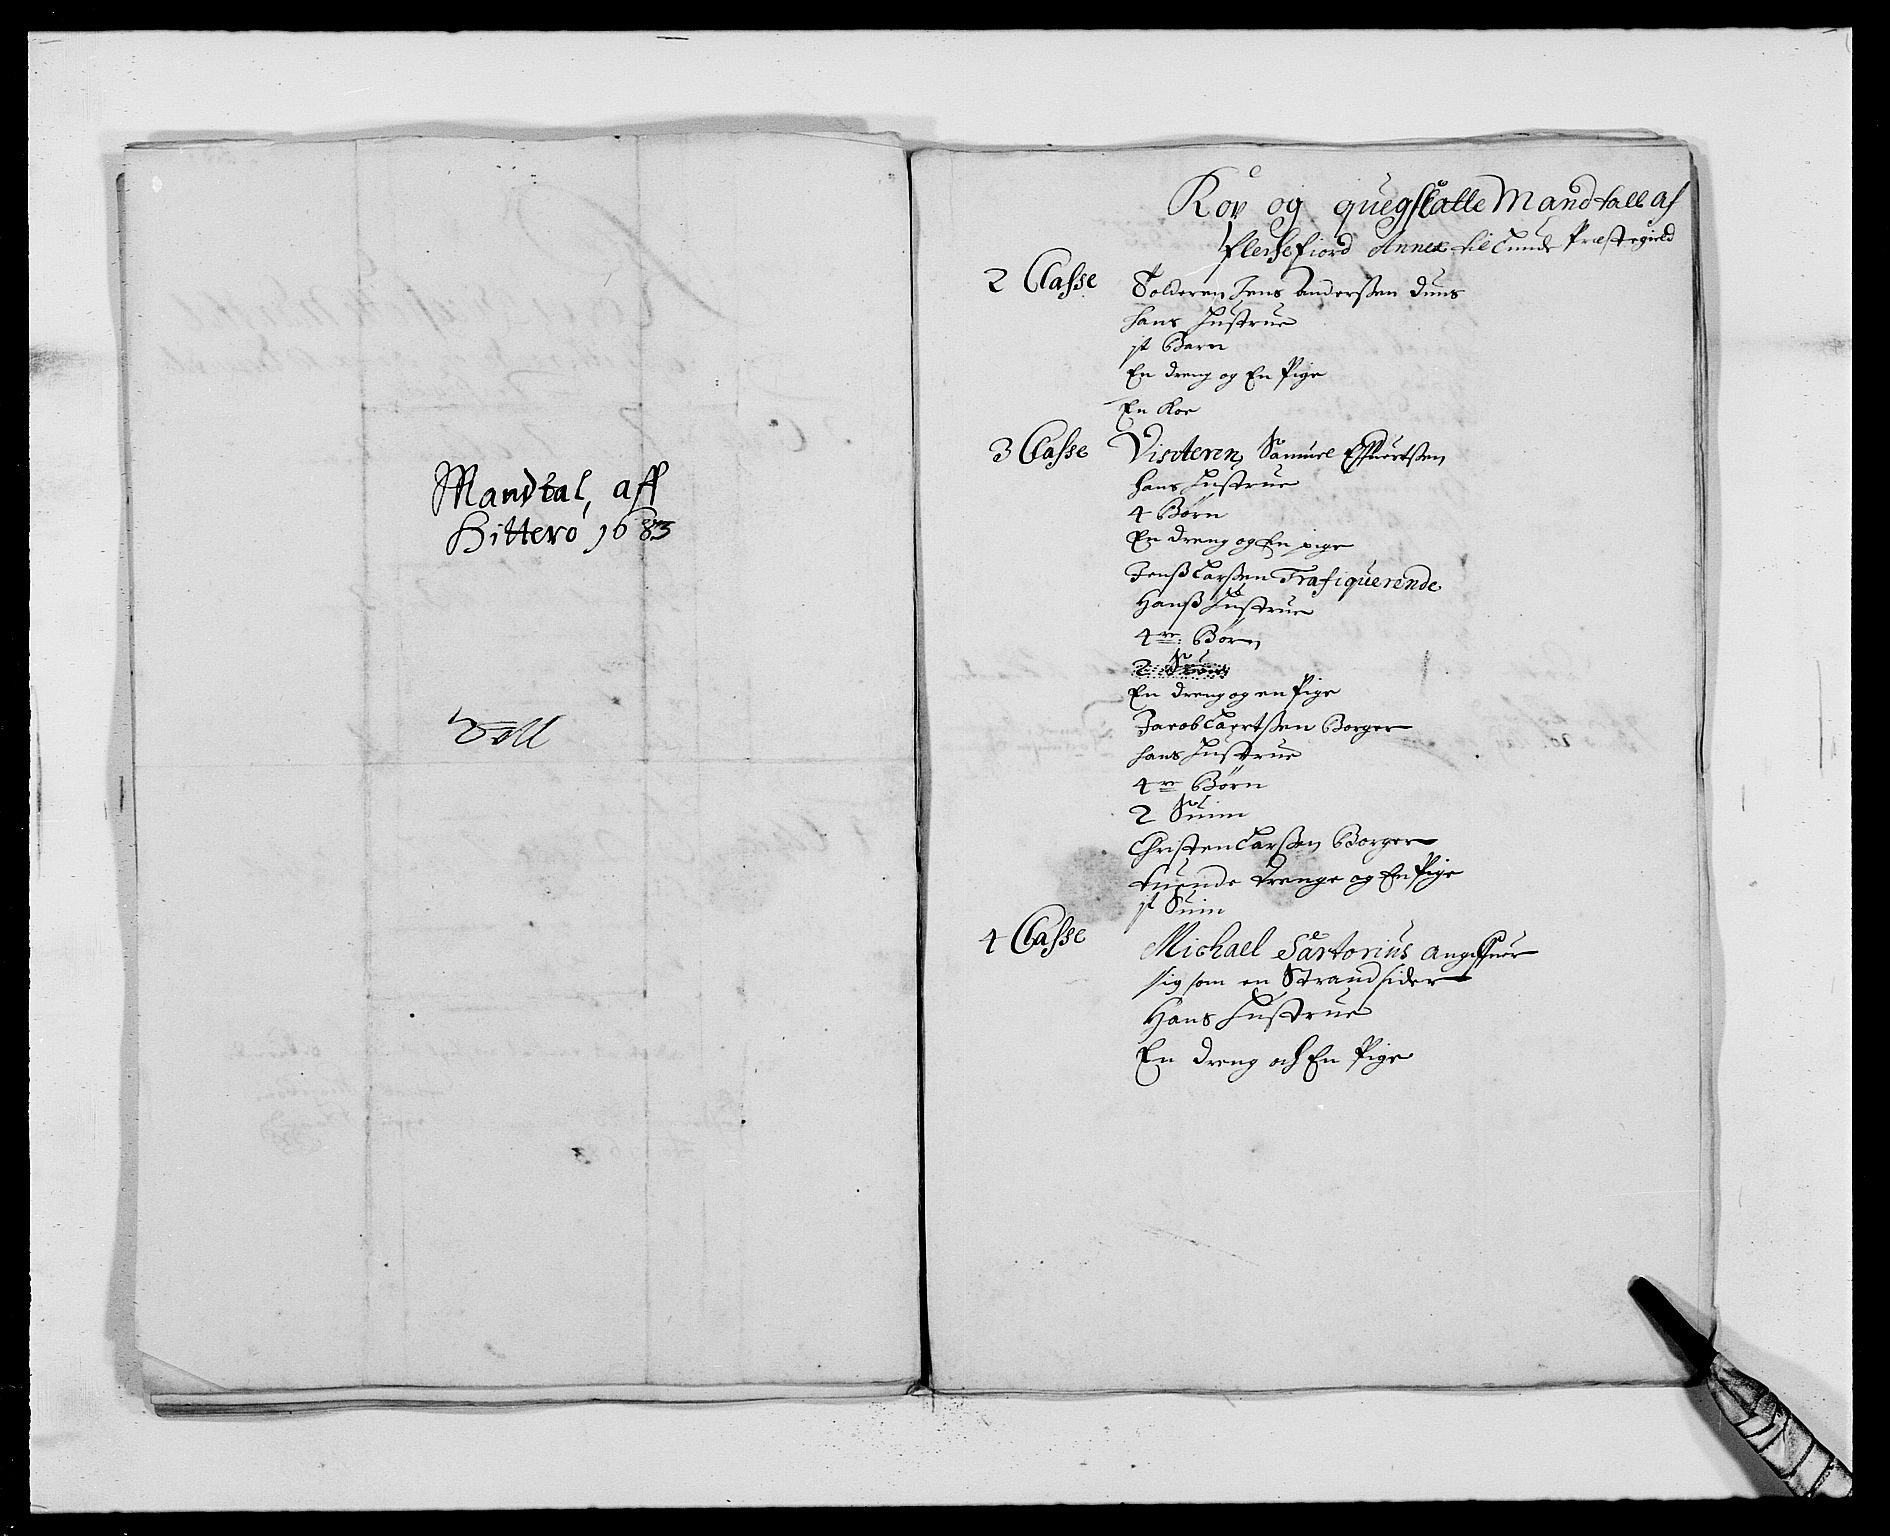 Mandtal, aff
Hitterö 1683
Kop og quegskatte Mandtall af
fleche fiord Annex til Lunde Præstegield
2 Classe
Tolderen Jens Anderssen Duus
hans Hustrue
jt Barn
En dreng og En Pige
En Koe
3 Classe
Visiteren Samuel
hans Hustrue
4 Börn
En dreng og En pige
Jenss Larssen Trafiquerende
Hanss Hustrue
4re Börn
2
En dreng og en Pige
Jacob Borger
hans Hustrue
4re Börn
2 Suiin
Christen Larssen Borger
tuende drenge og En Pige
jt Suin
4 Classe
Michael Sartorius angifuer
sig som en Strandsider
Hans Hustrue
En dreng och En Pige